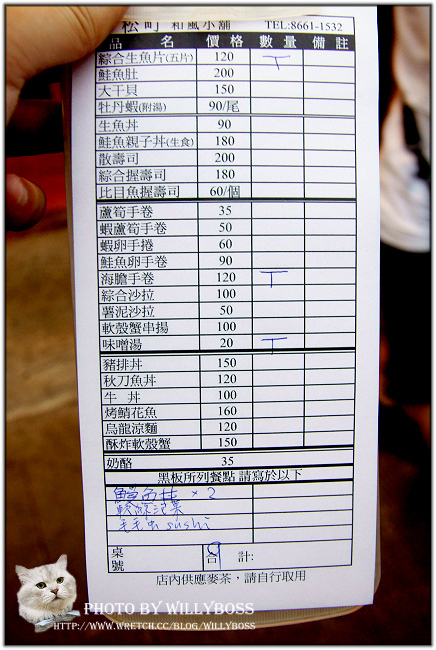 松町 和風小舖 TEL:8661-1532
品 名 價格 數量 備註
綜合生魚片(五片) 120 一
鮭魚肚 200
大干貝 150
牡丹蝦(附湯) 90/尾
生魚丼 90
鮭魚親子丼(生食) 180
散壽司 200
綜合握壽司 180
比目魚握壽司 60/個
蘆筍手卷 35
蝦蘆筍手卷 50
蝦卵手捲 60
鮭魚卵手卷 90
海膽手卷 120 一
綜合沙拉 100
薯泥沙拉 50
軟殼蟹串揚 100
味噌湯 20 一
豬排丼 150
秋刀魚丼 120
牛 丼 100
烤鯖花魚 160
烏龍涼麵 120
酥炸軟殼蟹 150
奶酪 35
黑板所列餐點 請寫於以下
鰻魚丼 × 2
毛毛虫 sushi
桌號 8 合 計:
店內供應麥茶，請自行取用
PHOTO BY WILLYBOSS
HTTP://WWW.WRETCH.CC/BLOG/WILLYBOSS